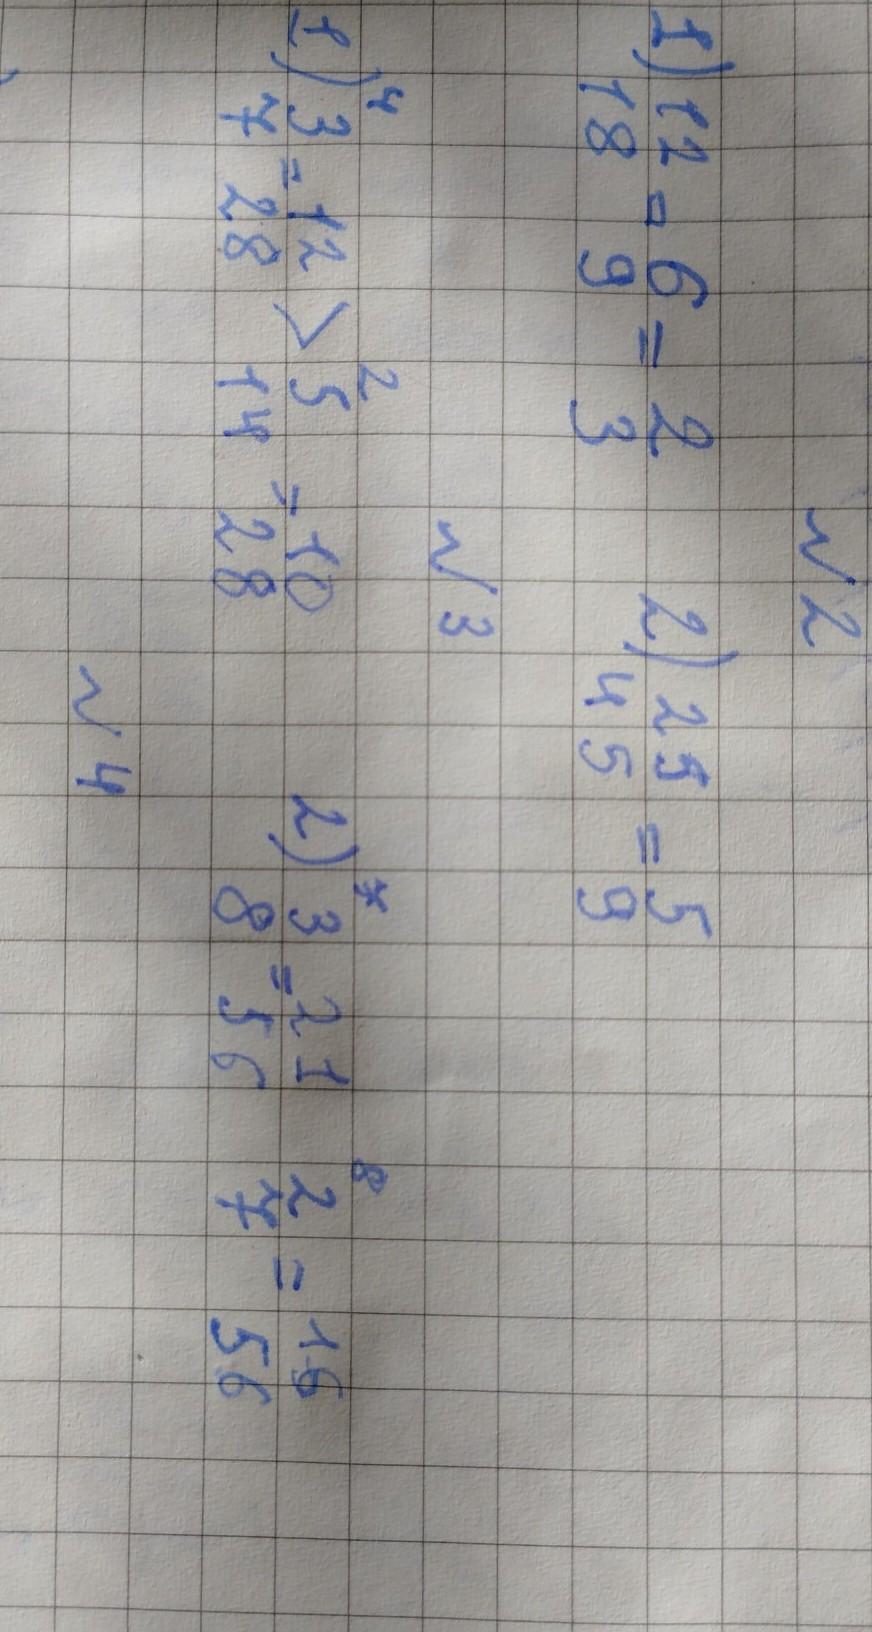 №2
1) 12/18 = 6/9 = 2/3 2) 25/45 = 5/9
№3
1) 3/7 ⁴ = 12/28 > 5/14 ² = 10/28 2) 3/8 ⁷ = 21/56 2/7 ⁸ = 16/56
№4